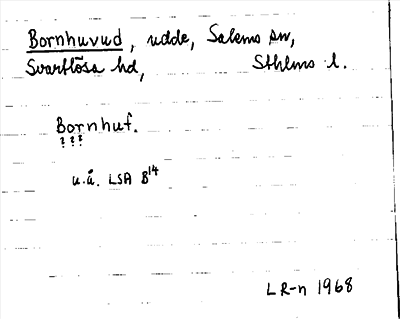 Bornhuvud, udde, Salems sn,
Svartlösa hd, Sthlms l.
Bornhuf.
???
u.å. LSA B14
LR-n 1968